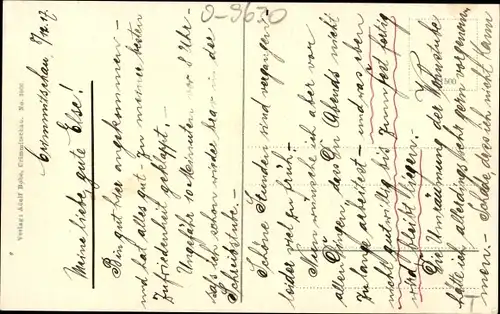 0-9670
Crimmitschau, 7/12.17.
Meine liebe, gute Else!
Bin gut hier angekommen -
und hat alles gut - zu meiner besten
Zufriedenheit geklappt. -
Ungefähr 10 Minuten vor 8 Uhr -
saß ich schon wieder brav in der
Schreibstube. -
Schöne Stunden sind vergangen -
leider viel zu früh -
Nun wünsche ich aber vor
allen Dingen, dass Du Abends nicht
zu lange arbeitest - und was eben
nicht gutwillig bis zum Fest fertig
wird, bleibt liegen. -
Die Umräumung der Wohnstube
hätte ich allerdings sehr gern vorgenom-
men. - Schade, dass ich nicht kann
Verlag: Adolf Crimmitschau. No.